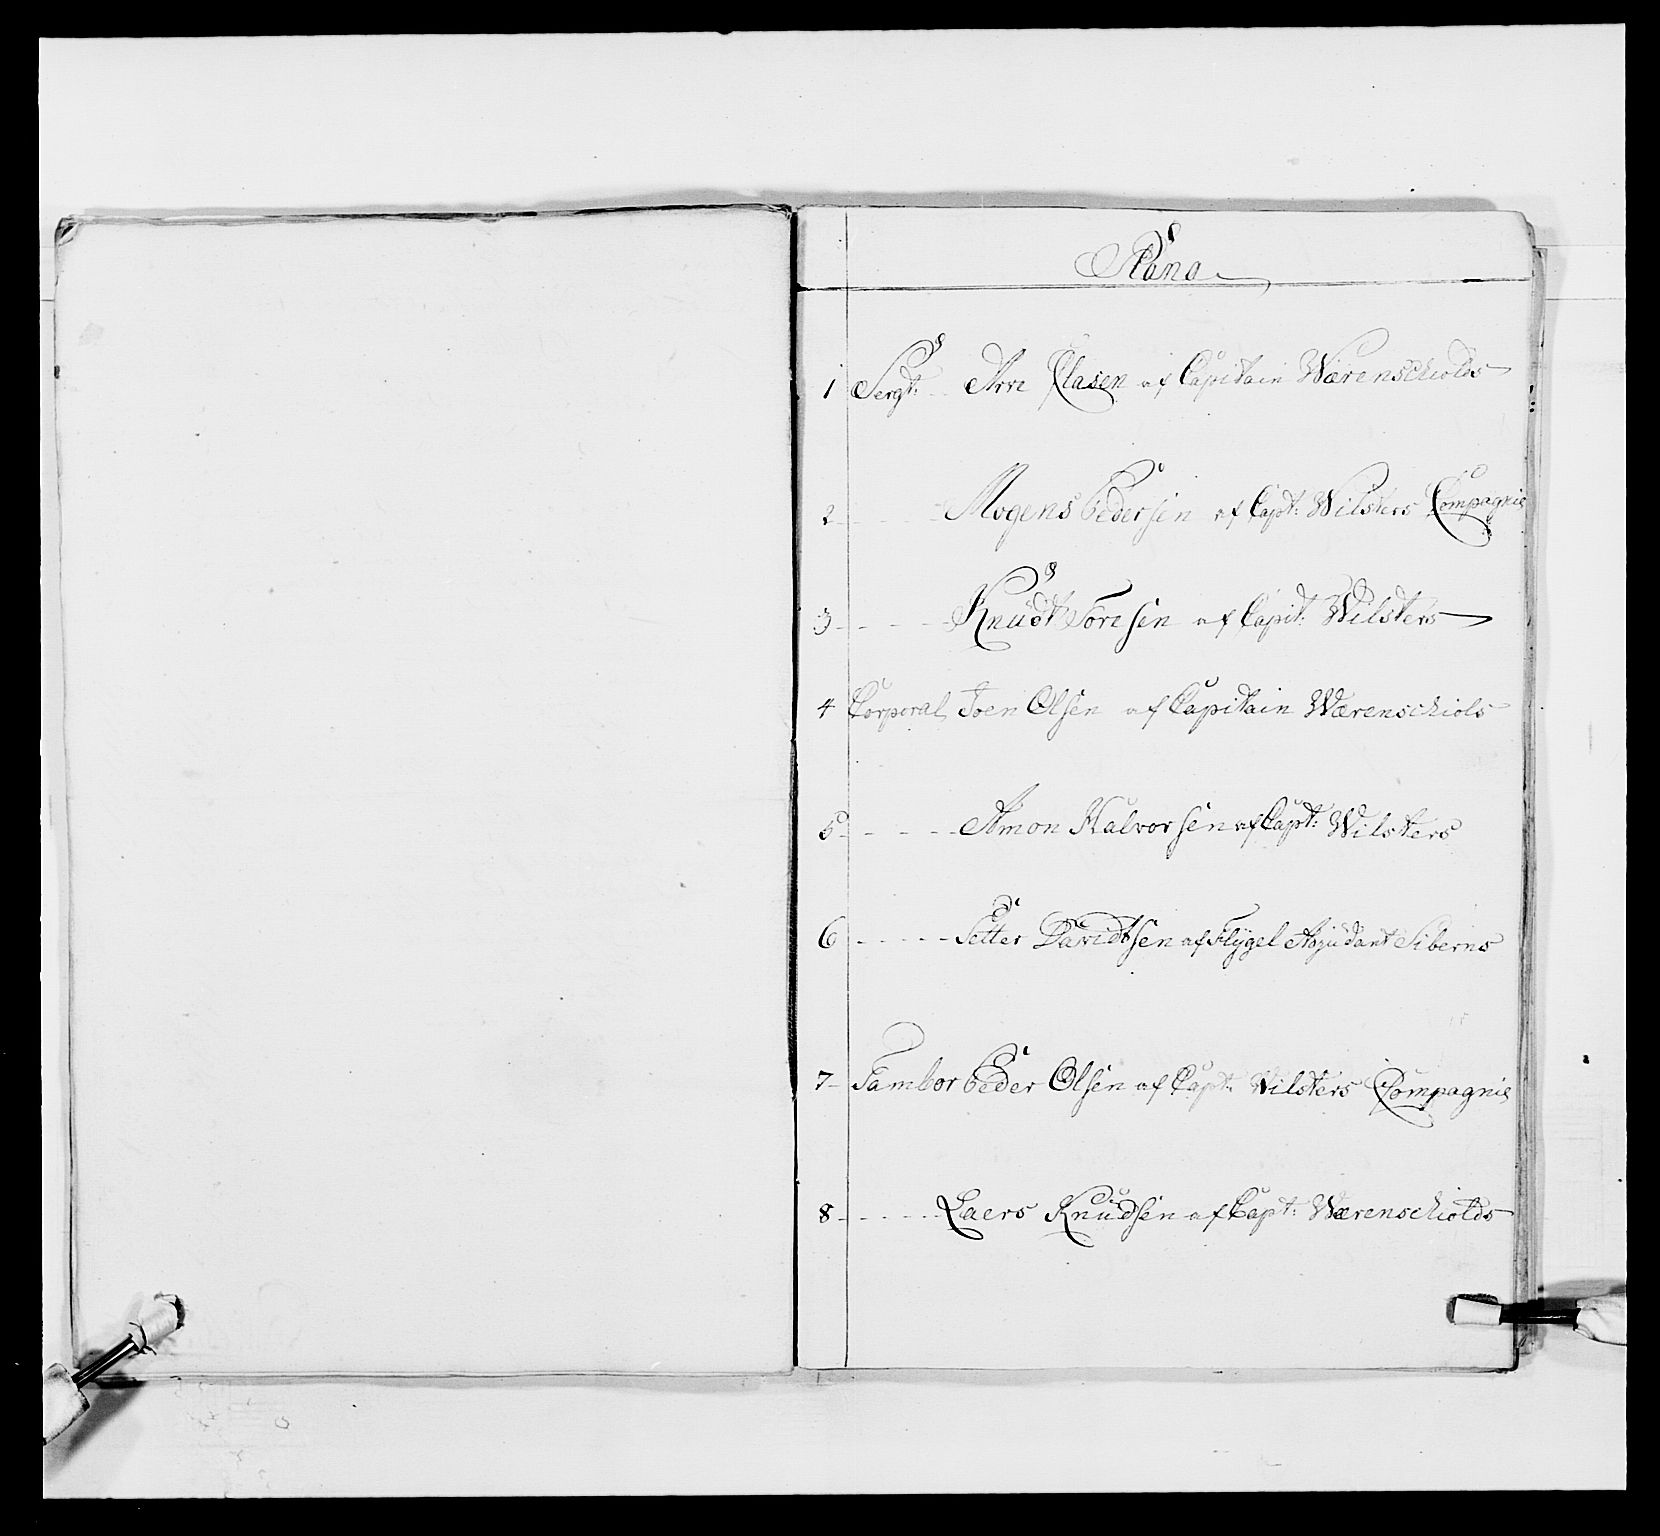 1 Sergt: Arre Clasen af Capitain Wærenschiolds
2 Mogens Pedersen af Capt: Wilsters Compagnie
3 Knudt Toresen af Capit: Wilsters
4 Corporal Joen Olsen af Capitain Wærenschiols
5 Amon Halvorsen af Capt: Wilsters
6 Petter Davidtsen af Flygel Adjudant Siberns
7 Tambor Peder Olsen af Capt: Wilsters Compagnie
8 Laers Knudsen af Capt: Wærenschiolds